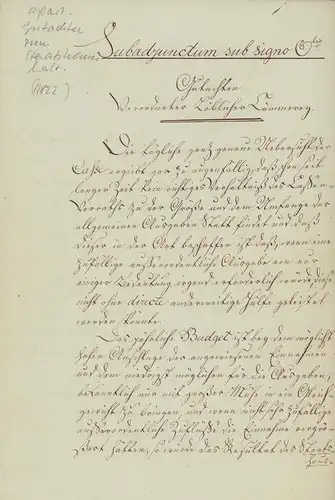 apart.
Gutachten
zum
Staatshaus
halt.
(1822)
Subadjunctum sub signo
Gutachten
Verordneter Löblicher Cämmerey.
Die tägliche ganz genaue Uebersicht der
Casse ergibt gar zu augenfällig, daß schon seit
langer Zeit kein richtiges Verhältniß des Casse-
Vorraths zu der Größe und dem Umfange der
allgemeinen Ausgaben Statt findet und daß
dieser in der Art beschaffen ist daß, wenn eine
zufällige außerordentliche Ausgabe von nur
einiger Bedeutung irgend erforderlich würde, diese
nicht ohne directe anderweitige Hülfe geleistet
werden könnte.
Das jährliche Budget ist bey dem möglichst
hohen Anschlage der angewiesenen Einnahmen
und dem niedrigst möglichen für die Ausgaben,
bekanntlich nur mit großer Mühe in ein Gleich-
gewicht zu bringen, und wenn nicht sehr zufällige
außerordentliche Zuflüsse die Einnahme vergrö-
ßert hätten, so würde das Resultat des Staats-
haus-